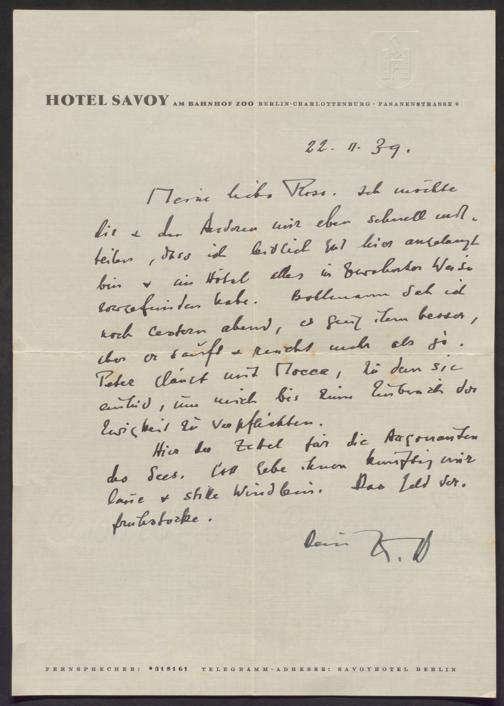 HOTEL SAVOY AM BAHNHOF ZOO BERLIN-CHARLOTTENBURG · FASANENSTRASSE 9
22. 11. 39.
Meine liebe Rose. Ich möchte
Dir & den Anderen nur eben schnell mit-
teilen, dass ich leidlich gut hier angelangt
bin & im Hotel alles in Weise
vorgefunden habe. Bollmann sah ich
noch gestern abend, es ging ihm besser,
aber er säuft & raucht mehr als je.
Peter mit Mocca, zu dem sie
einlud, um mich bis zum Einbruch der
Ewigkeit zu verpflichten.
Hier der Zettel für die Argonauten
des Sees. Gott gebe ihnen künftig nur
laue & stille Winde. Das Geld ver-
frühstücke.
Dein K. W
FERNSPRECHER: *318161 TELEGRAMM-ADRESSE: SAVOYHOTEL BERLIN